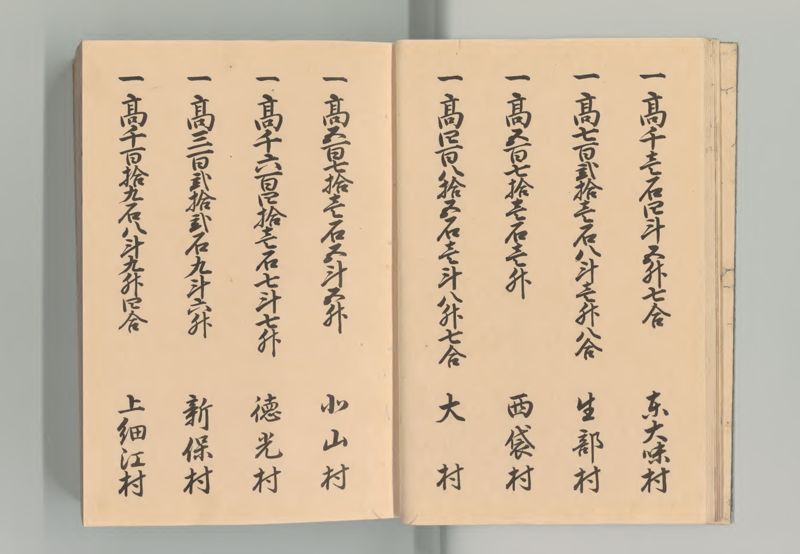 一高千壱石四斗五升七合 東大味村
一高七百弐拾壱石八斗壱升八合 生部村
一高五百七拾壱石壱升 西袋村
一高四百八拾五石壱斗八升七合 大村
一高五百七拾壱石五斗五升 小山村
一高千六百四拾壱石七斗七升 徳光村
一高三百弐拾弐石九斗六升 新保村
一高千百拾九石八斗九升四合 上細江村